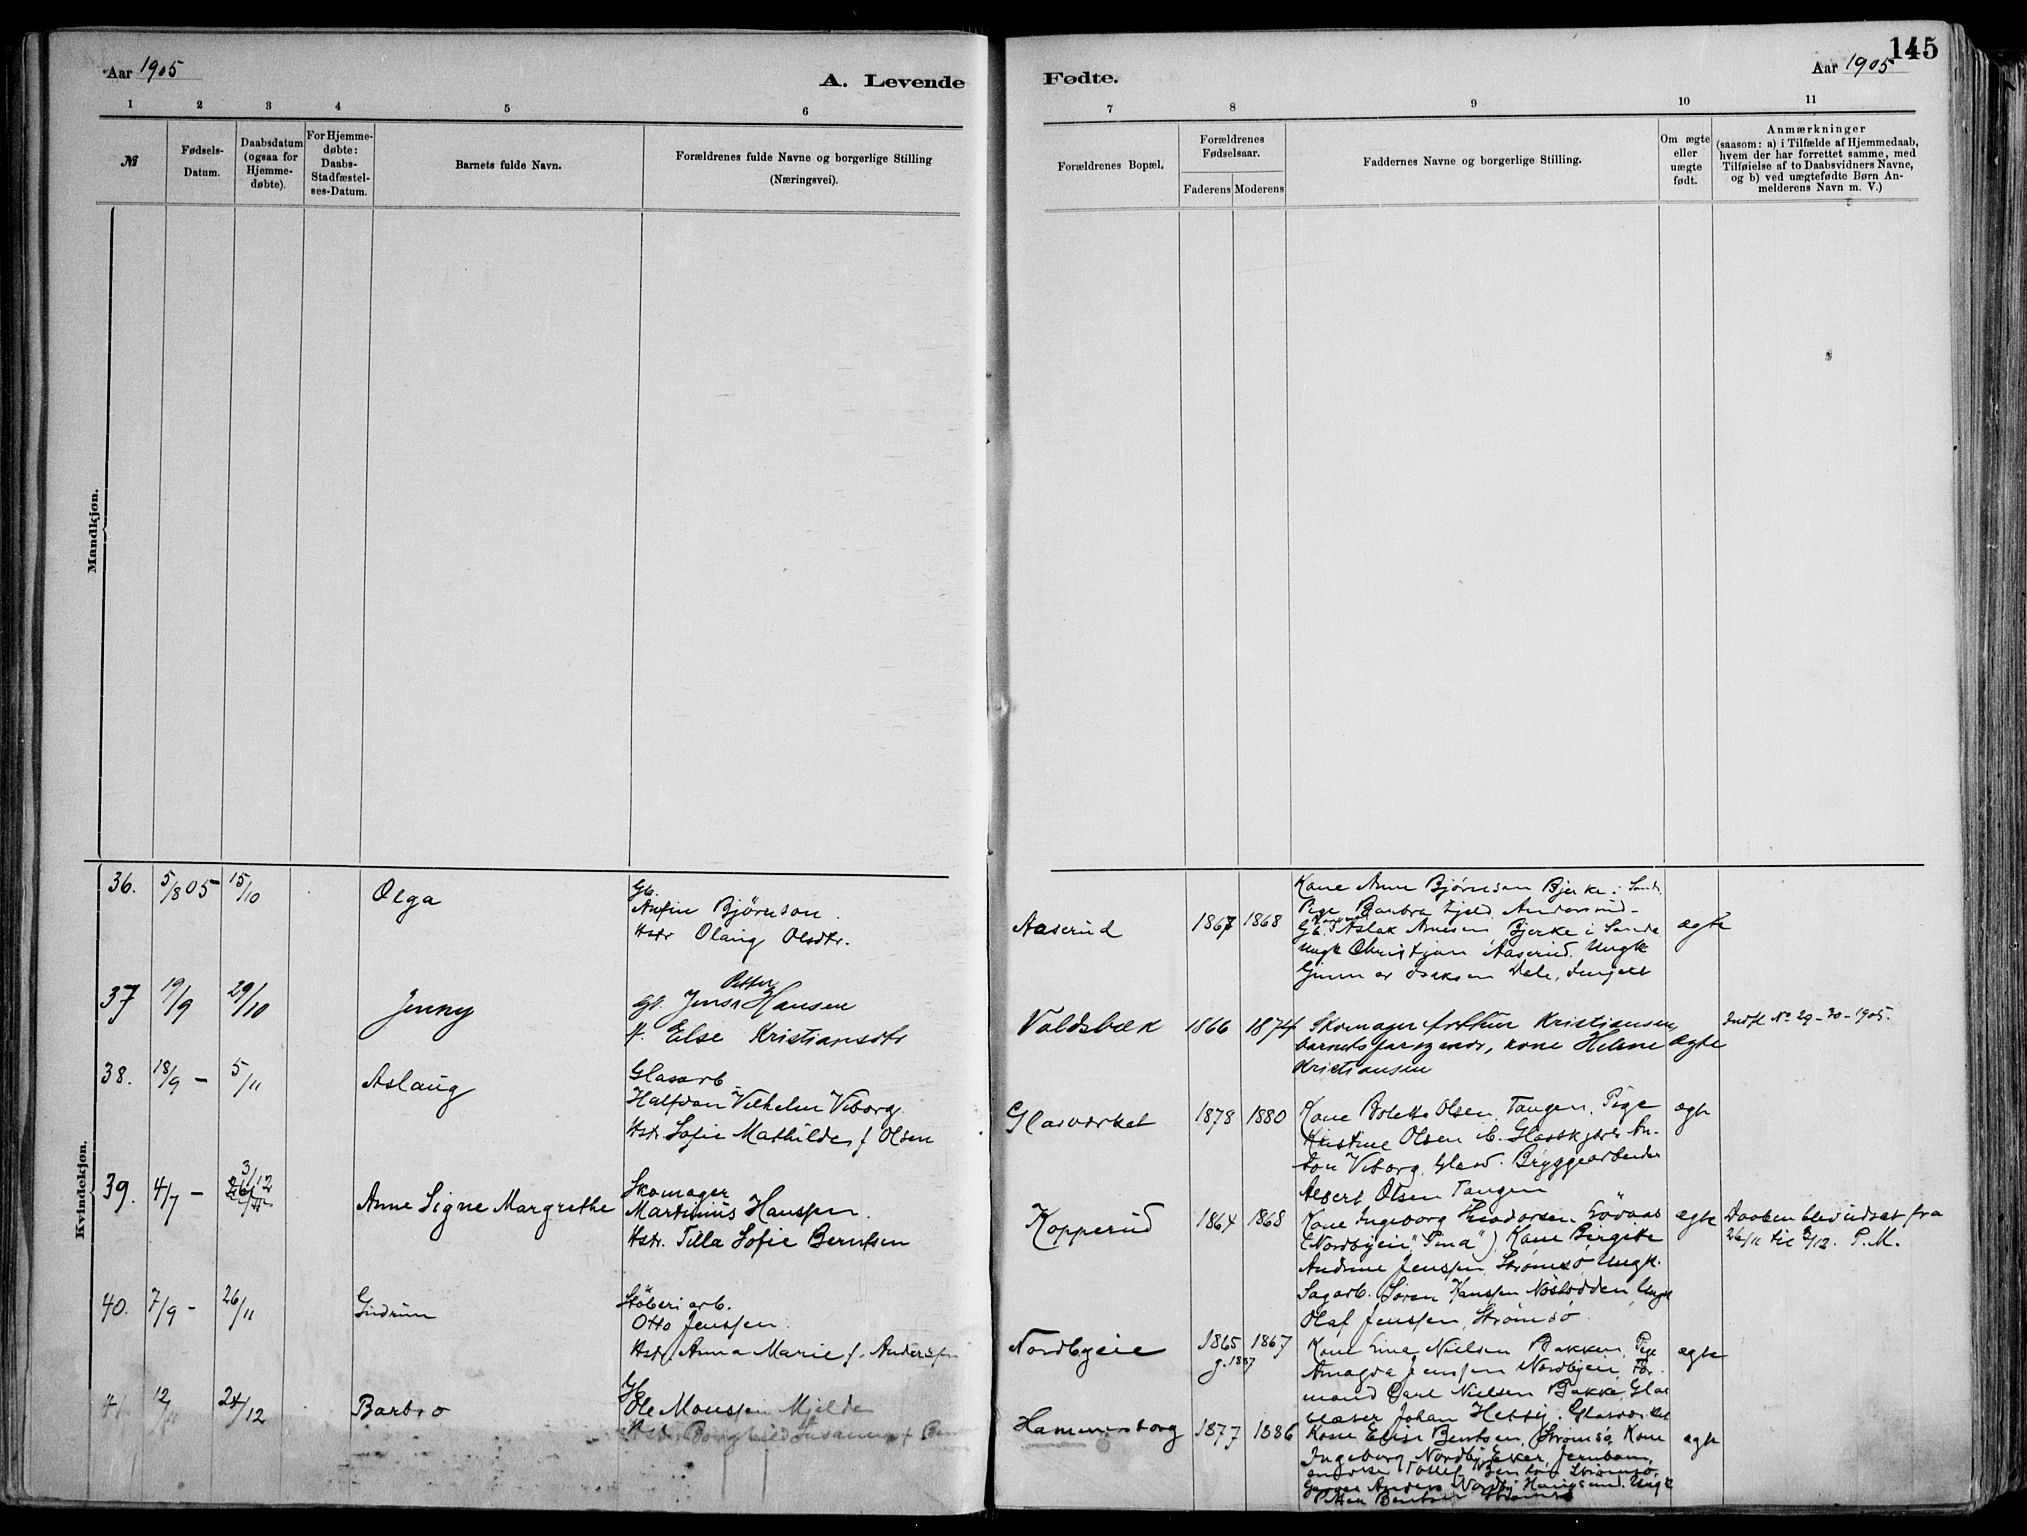 Aar 1905
A. Levende
Fødte.
Aar 1905
145
1 2 3 4 5 6
7 8 9 10 11
№
Fødsels-
Datum.
Daabsdatum
(ogsaa for
Hjemme-
døbte).
For Hjemme-
døbte:
Daabs-
Stadfæstel-
ses-Datum.
Barnets fulde Navn.
Forældrenes fulde Navne og borgerlige Stilling
(Næringsvei).
Forældrenes Bopæl.
Forældrenes
Fødselsaar.
Faderens Moderens
Faddernes Navne og borgerlige Stilling.
Om ægte
eller
uægte
født.
Anmærkninger
(saasom: a) i Tilfælde af Hjemmedaab,
hvem der har forrettet samme, med
Tilføielse af to Daabsvidners Navne,
og b) ved uægtefødte Børn An-
melderens Navn m. V.)
Mandkjøn.
Kvindekjøn.
36. 5/8 05 15/10
Olga
Gb.
Anfin Bjørnson.
Hstr Olaug Olsdtr.
Aaserud
1867 1868
Kone Anne Bjørnson Bjerke i Sande
Pige Barbra
Gb. Aslak Bjerke i Sande
Ungk Christian Aaserud. Ungk
Dale,
ægte
37 19/9 29/10
Jenny
Petter
Gb. Jens Hansen
H. Else Kristiansdtr
Valdsbæk
1866 1874
Skomager Arthur Kristiansen,
barnets kone Helene
Kristiansen
ægte
Indfl. No 29-30-1905.
38. 18/9 - 5/11
Aslaug
Glasarb.
Halfdan Vilhelm Viborg.
Hstr. Sofie Mathilde f. Olsen
Glasværket
1878 1880
Kone Bolette Olsen, Tangen, Pige
Kristine Olsen ib. An-
ton Viborg, Bryggearbeider
Albert Olsen Tangen
ægte
39. 4/7 - 3/12
26/11
Anne Signe Margrethe
Skomager
Martinius Hanssen.
Hstr. Tilla Sofie Berntsen
Kopperud
1864 1868
Kone Ingeborg Theodorsen,
(Nordbyeie), Kone Birgitte
Andrine Jenssen, Strømsø Ungk.
Sagarb. Søren Hanssen Ungk
Olaf Jenssen, Strømsø
ægte
Daaben blev udsat fra
26/11 til 3/12. P.M.
40. 7/9 - 26/11
Gudrun
Støberiarb.
Otto Jenssen.
Hstr. Anna Marie f. Anderssen
Nordbyeie
1865 1867
Kone Nielsen Bakken, Pige
Amagda Jenssen Nordbyeie, For-
mand Carl Nielsen Bakke, Glas-
blæser Johan Glasværket
ægte
41 12/11 24/12
Barbro
Gb.
Ole Monssen Mjelde
Hstr. Borghild Susanna f.
Hammersborg
1877 1886
Kone Elise Berntsen, Strømsø, Kone
Ingeborg Nordby Eker,
Berntsen Strømsø,
Anders Nordby Ungk
Petter Berntsen Strømsø
ægte